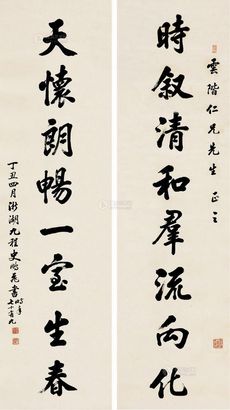 雲階仁兄先生 正之
時叙清和羣流向化
天懷朗暢一室生春
丁丑四月浙湖九種史 書時年七十有九